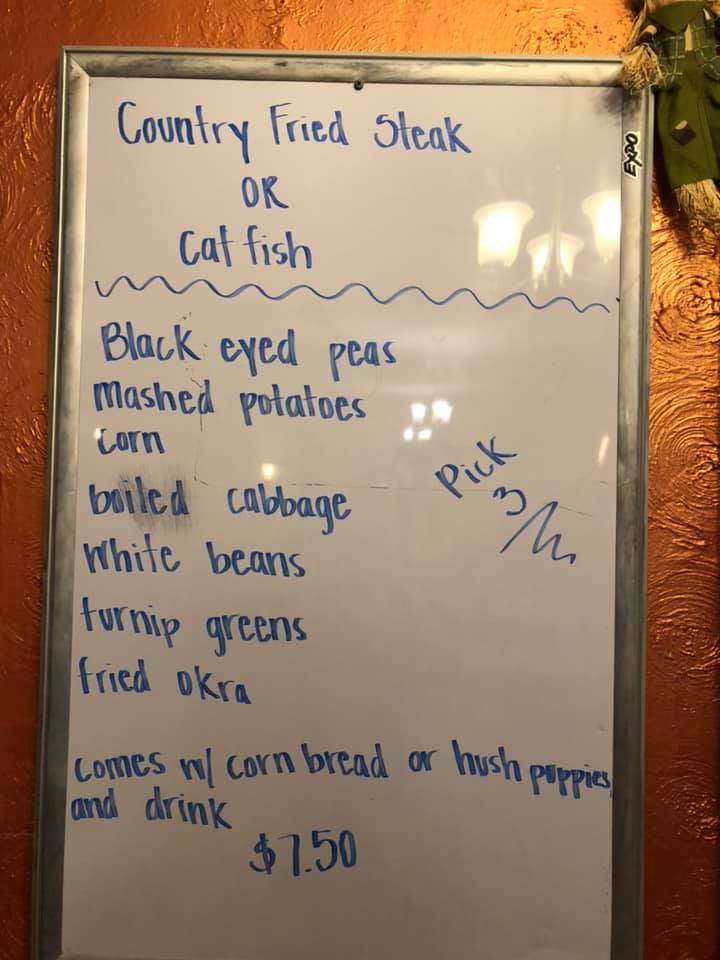 Country Fried Steak
OR
Cat fish
Black eyed peas
mashed potatoes
corn
boiled cabbage
Pick
3
White beans
turnip greens
fried okra
comes w/ corn bread or hush puppies,
and drink
$7.50
EXPO